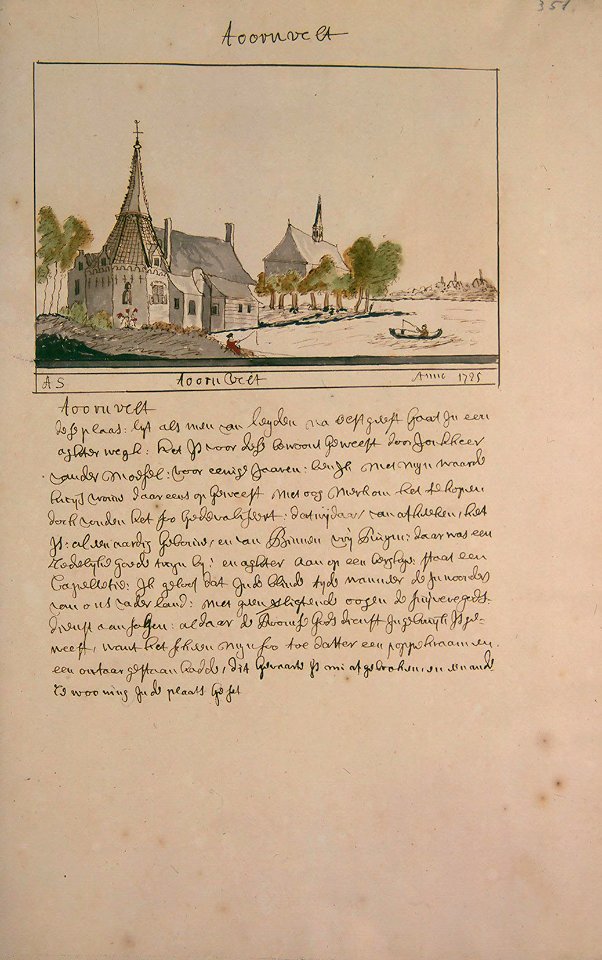 351.
toornvelt
AS
toornvelt
Anno 1725
toornvelt
dese plaats: lijt als men van leyden na oestgeest Gaat In een
aghter wegh: het Is voor dese bewoont geweest door Jonkheer
vander Moesel: voor eenige Jaaren: ben Ik met mijn waarde
huijs vrouw daer eens op geweest met oog merk om het te kopen
doch vonden het soo Gedevaliseert: dat wij daar van afkeken, het
Is: al een aardig Gebouw, en van Binnen vrij Ruym: daar was een
Redelijke goede tuyn bij: en aghter aan op een bergje staat een
Capelletie: Ik geloof dat In de blinde tijde wanneer de Inwoorders
van ons vaderland: met geen ligtende oogen de suijvere gods-
dienst aansagen: aldaar de Roomse Gods dienst In gebruijk Is ge-
weest, want het scheen mijn soo toe datter een poppekraam en
een outaar gestaan hadde, dit Gevaarte Is nu afgebroken, en een ande
re wooning In de plaats geset